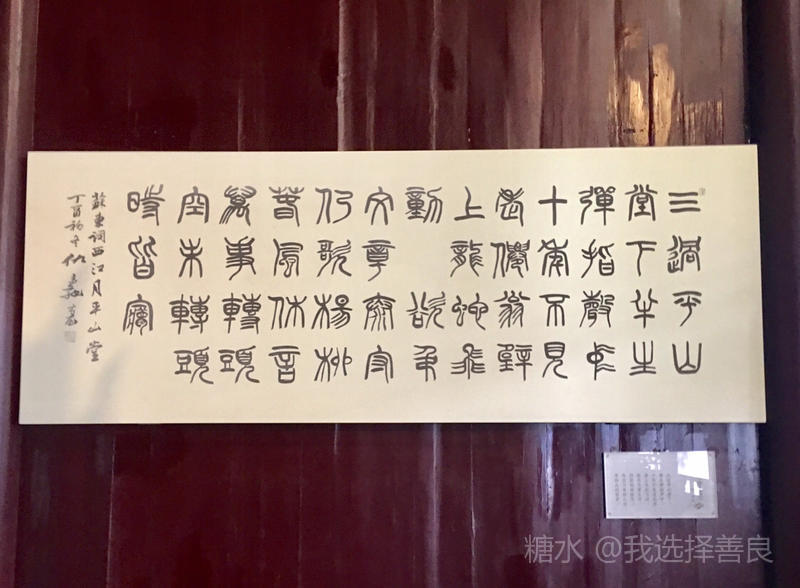 三過平山
堂下半生
彈指聲中
十年不見
老僊翁壁
上龍蛇飛
動 欲弔
文章太守
仍歌楊柳
春風休言
萬事轉頭
空未轉頭
時皆夢
蘇東詞西江月平山堂
丁酉
糖水 @我选择善良